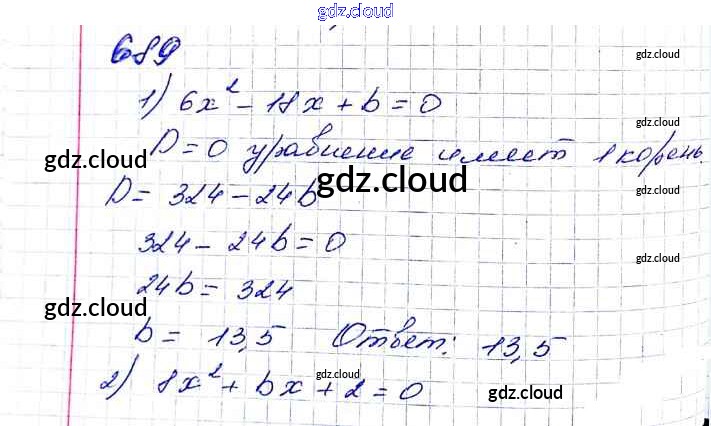 gdz.cloud
689
gdz.cloud
1) 6x² - 18x + b = 0
gdz.cloud
D = 0 уравнение имеет 1 корень.
gdz.cloud
gdz.cloud
gdz.cloud
D = 324 - 24b
324 - 24b = 0
gdz.cloud
24b = 324
gdz.cloud
gdz.cloud
b = 13,5 Ответ: 13,5
gdz.cloud
2) 8x² + bx + 2 = 0
gdz.cloud